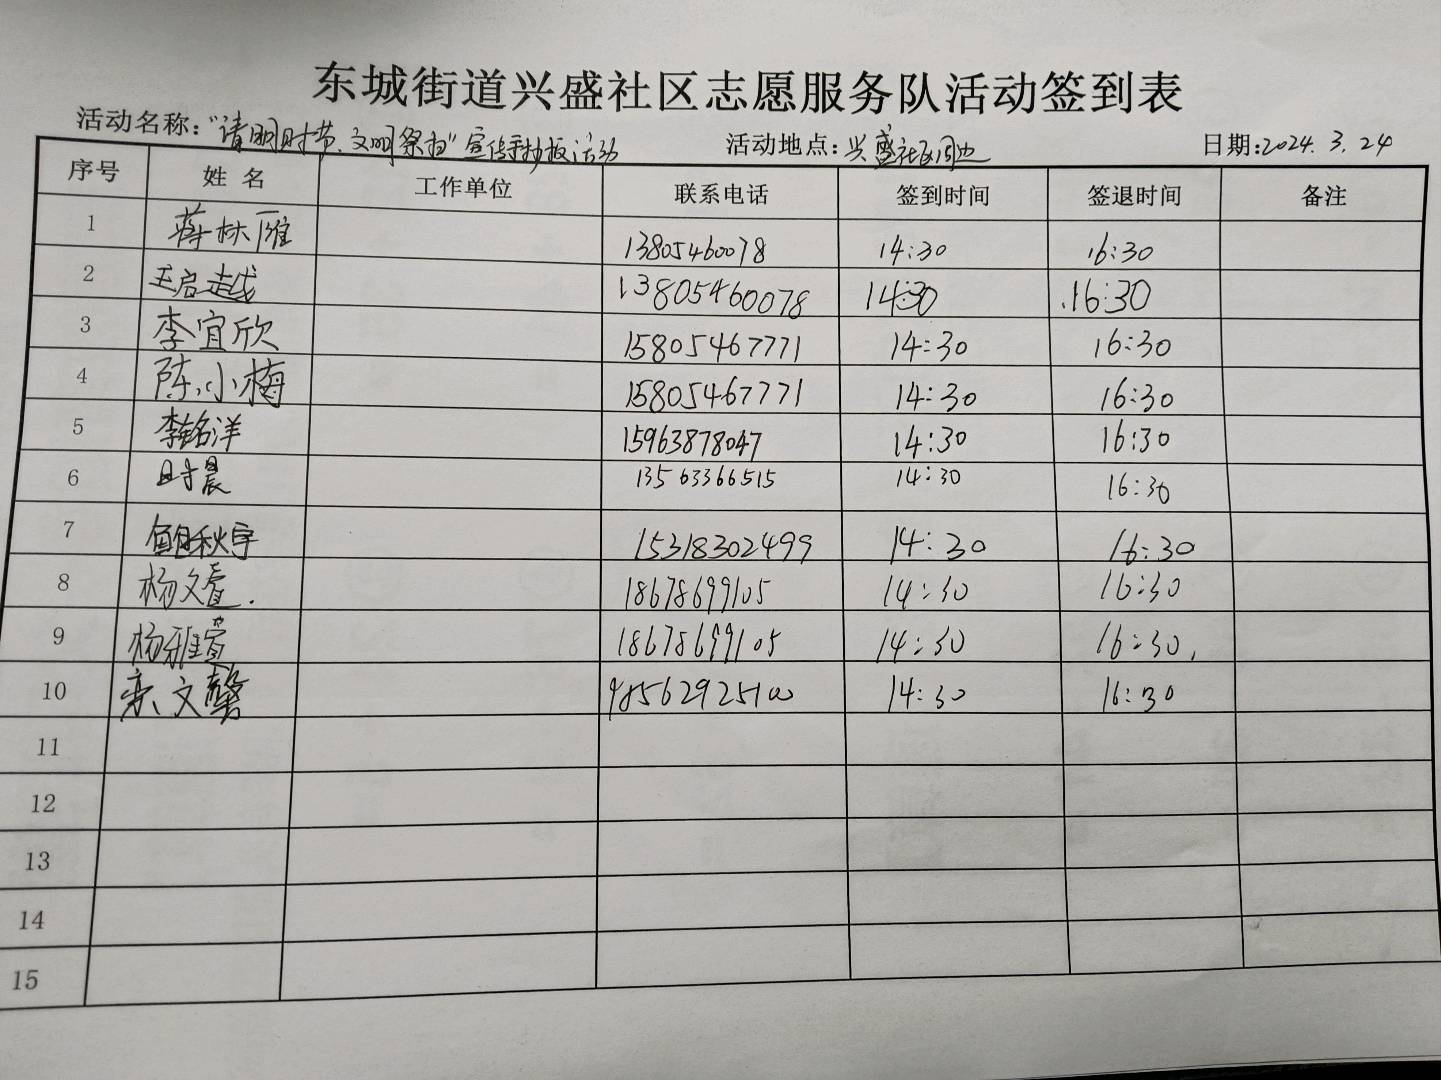 东城街道兴盛社区志愿服务队活动签到表
活动名称：“清明时节、文明祭扫”宣传手抄报活动 活动地点：兴盛社区周边 日期：2024.3.24
序号 姓名 工作单位 联系电话 签到时间 签退时间 备注
1 蒋林雁 13805460078 14:30 16:30
2 王启越 13805460078 14:30 16:30
3 李宜欣 15805467771 14:30 16:30
4 陈小梅 15805467771 14:30 16:30
5 李铭洋 15963878047 14:30 16:30
6 时晨 13563366515 14:30 16:30
7 秋宇 15318302499 14:30 16:30
8 杨文萱. 18678699105 14:30 16:30
9 杨雅萱 18678699105 14:30 16:30
10 文馨 14:30 16:30
11
12
13
14
15